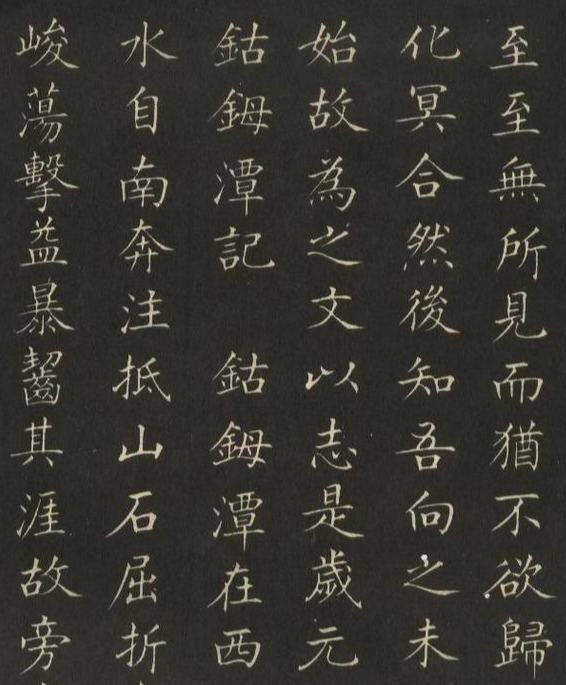 至至無所見而猶不欲歸
化冥合然後知吾向之未
始故為之文以志是歲元
鈷鉧潭記　鈷鉧潭在西
水自南奔注抵山石屈折
峻蕩擊益暴齧其涯故旁